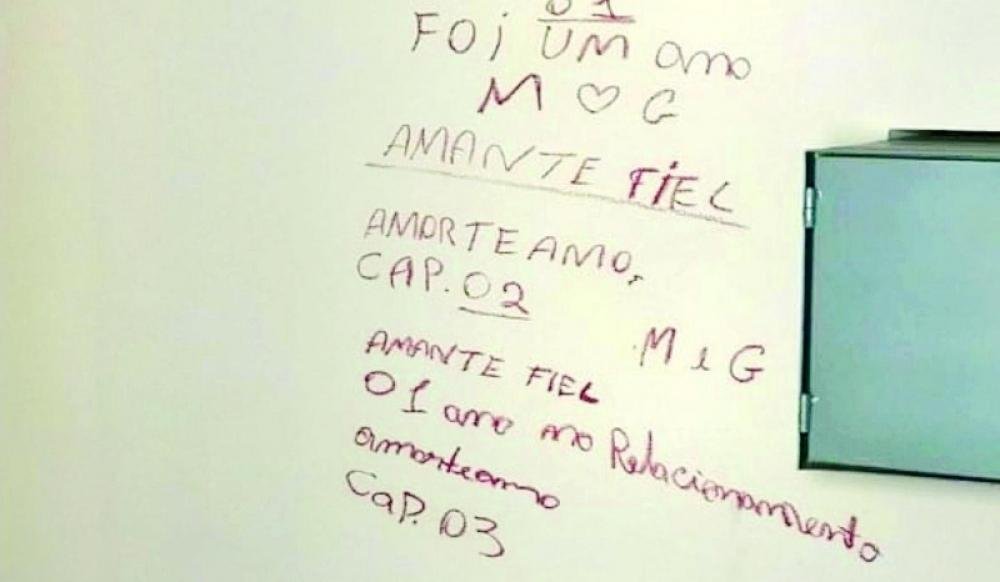 01
FOi UM ano
M ♡ G
AMANTE FiEL
AMORTEAMO,
CAP. 02
M e G
AMANTE FIEL
01 ano no Relacionamento
amorteamo
CaP. 03